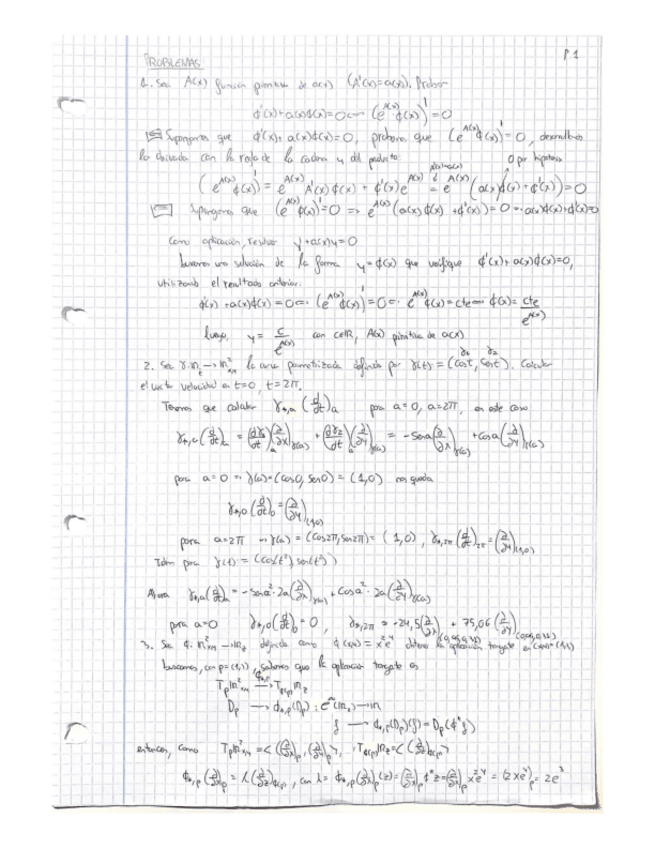 P 1
PROBLEMAS
1. Sea A(x) función primitiva de a(x) (A'(x)=a(x)). Probar
ϕ'(x)+a(x)ϕ(x)=0 ⟺ (e^{A(x)}·ϕ(x))'=0
Supongamos que ϕ'(x)+a(x)ϕ(x)=0, probemos que (e^{A(x)}ϕ(x))'=0,
la derivada con la regla de la cadena y del producto:
A'(x)=a(x) 0 por hipótesis
(e^{A(x)}ϕ(x))' = e^{A(x)} A'(x)ϕ(x) + ϕ'(x)e^{A(x)} = e^{A(x)}(a(x)ϕ(x)+ϕ'(x))=0
Supongamos que (e^{A(x)}ϕ(x))'=0 => e^{A(x)}(a(x)ϕ(x)+ϕ'(x))=0 => a(x)ϕ(x)+ϕ'(x)=0
Como aplicación, resolver y'+a(x)y=0
buscamos una solución de la forma y=ϕ(x) que verifique ϕ'(x)+a(x)ϕ(x)=0,
utilizando el resultado anterior:
ϕ'(x)+a(x)ϕ(x)=0 ⟺ (e^{A(x)}ϕ(x))'=0 ⟺ e^{A(x)}ϕ(x)=cte ⟺ ϕ(x)= cte/e^{A(x)}
luego, y = c/e^{A(x)} con c∈ℝ, A(x) primitiva de a(x)
γ₁ γ₂
2. Sea γ:ℝ_t→ℝ²_{x,y} la curva parametrizada definida por γ(t)=(cos t, sen t). Calcular
el vector velocidad en t=0, t=2π.
Tenemos que calcular γ_{*,a}(d/dt)_a para a=0, a=2π, en este caso
γ_{*,a}(d/dt)_a = (dγ₁/dt)_a(∂/∂x)_{γ(a)} + (dγ₂/dt)_a(∂/∂y)_{γ(a)} = -sen a(∂/∂x)_{γ(a)} + cos a(∂/∂y)_{γ(a)}
para a=0 => γ(a)=(cos 0, sen 0)=(1,0) nos queda
γ_{*,0}(d/dt)_0=(∂/∂y)_{(1,0)}
para a=2π => γ(a)=(cos 2π, sen 2π)=(1,0), γ_{*,2π}(d/dt)_{2π}=(∂/∂y)_{(1,0)}
para γ(t)=(cos(t²), sen(t²))
Ahora γ_{*,a}(d/dt)_a=-sen a²·2a(∂/∂x)_{γ(a)}+cos a²·2a(∂/∂y)_{γ(a)}
para a=0 γ_{*,0}(d/dt)_0=0,
3. Sea ϕ:ℝ²_{x,y}→ℝ_z definida como ϕ(x,y)=x²e^y obtener la aplicación tangente en (x,y)=(1,1)
buscamos, con p=(1,1), sabemos que la aplicación tangente es
T_pℝ²_{x,y} →^{ϕ_{*,p}} T_{ϕ(p)}ℝ_z
D_p → ϕ_{*,p}(D_p): C^∞(ℝ_z)→ℝ
f → ϕ_{*,p}(D_p)(f)=D_p(ϕ*f)
entonces, como T_pℝ²_{x,y}=<(∂/∂x)_p,(∂/∂y)_p>, T_{ϕ(p)}ℝ_z=<(∂/∂z)_{ϕ(p)}>
ϕ_{*,p}(∂/∂x)_p=λ(∂/∂z)_{ϕ(p)}, con λ=ϕ_{*,p}(∂/∂x)_p(z)=(∂/∂x)_pϕ*z=(∂/∂x)_p x²e^y=(2xe^y)_p=2e